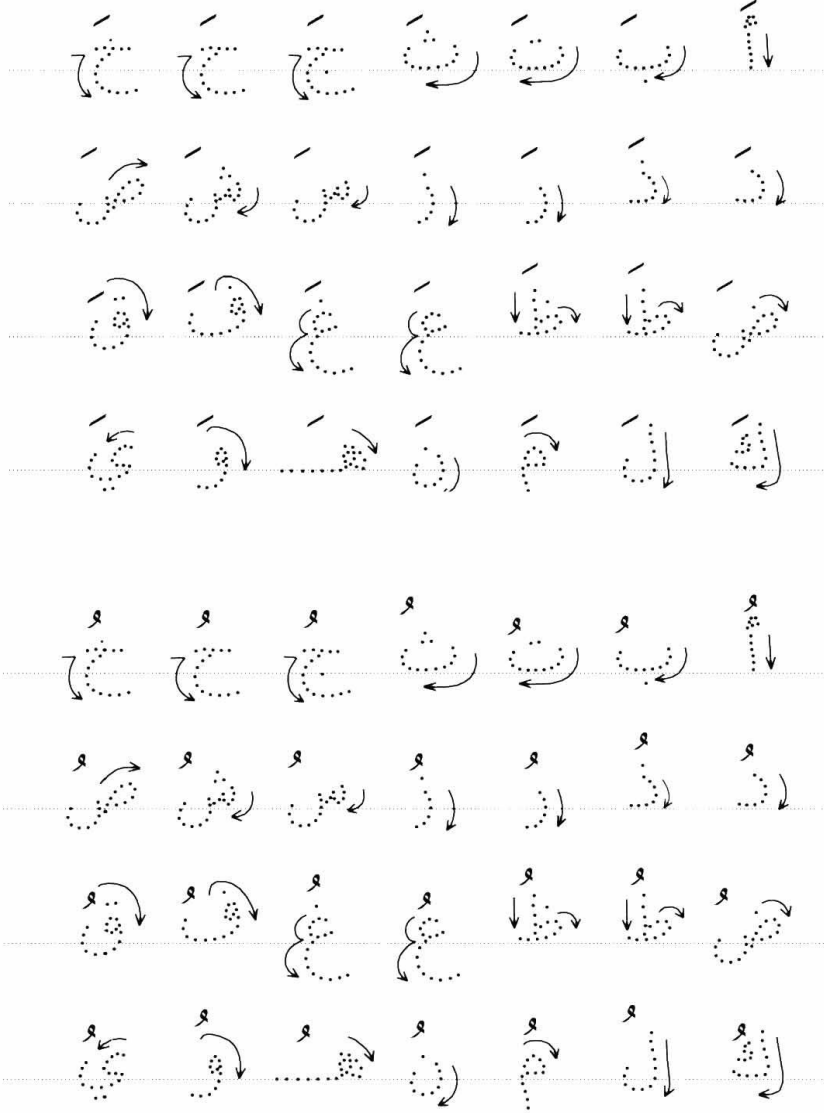 أَ بَ تَ ثَ جَ حَ خَ
دَ ذَ رَ زَ سَ شَ صَ
ضَ طَ ظَ عَ غَ فَ قَ
كَ لَ مَ نَ هَـ وَ يَ
أُ بُ تُ ثُ جُ حُ خُ
دُ ذُ رُ زُ سُ شُ صُ
ضُ طُ ظُ عُ غُ فُ قُ
كُ لُ مُ نُ هُـ وُ يُ